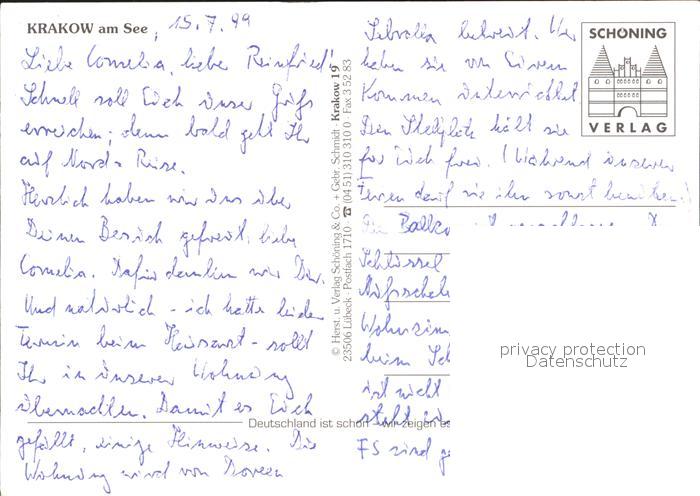 KRAKOW am See, 15.7.99
Liebe Cornelia, lieber Reinfried!
Schnell soll Euch unser Gruß
erreichen; denn bald geht Ihr
auf Nord-Reise.
Herzlich haben wir uns über
Deinen Besuch gefreut, liebe
Cornelia. Dafür danken wir Dir.
Und natürlich - ich hatte leider
Termin beim Hausarzt - sollt
Ihr in unserer Wohnung
übernachten. Damit es Euch
gefällt, einige Hinweise. Die
Wohnung wird von Doreen
© Herst. u. Verlag Schöning & Co. + Gebr. Schmidt Krakow 19
23506 Lübeck · Postfach 1710 · ☎ (04 51) 310 310 0 · Fax 3 52 83
Deutschland ist schön - wir zeigen es
betreut. Wir
haben sie von Eurem
Kommen unterrichtet.
Den Stellplatz hält sie
für Euch frei. (Während unserer
Ferien darf sie ihn sonst benutzen.)
Die Balko
Schlüssel
Wohnzim
beim Sch
ist nicht
steht
FS sind g
SCHÖNING
VERLAG
privacy protection
Datenschutz